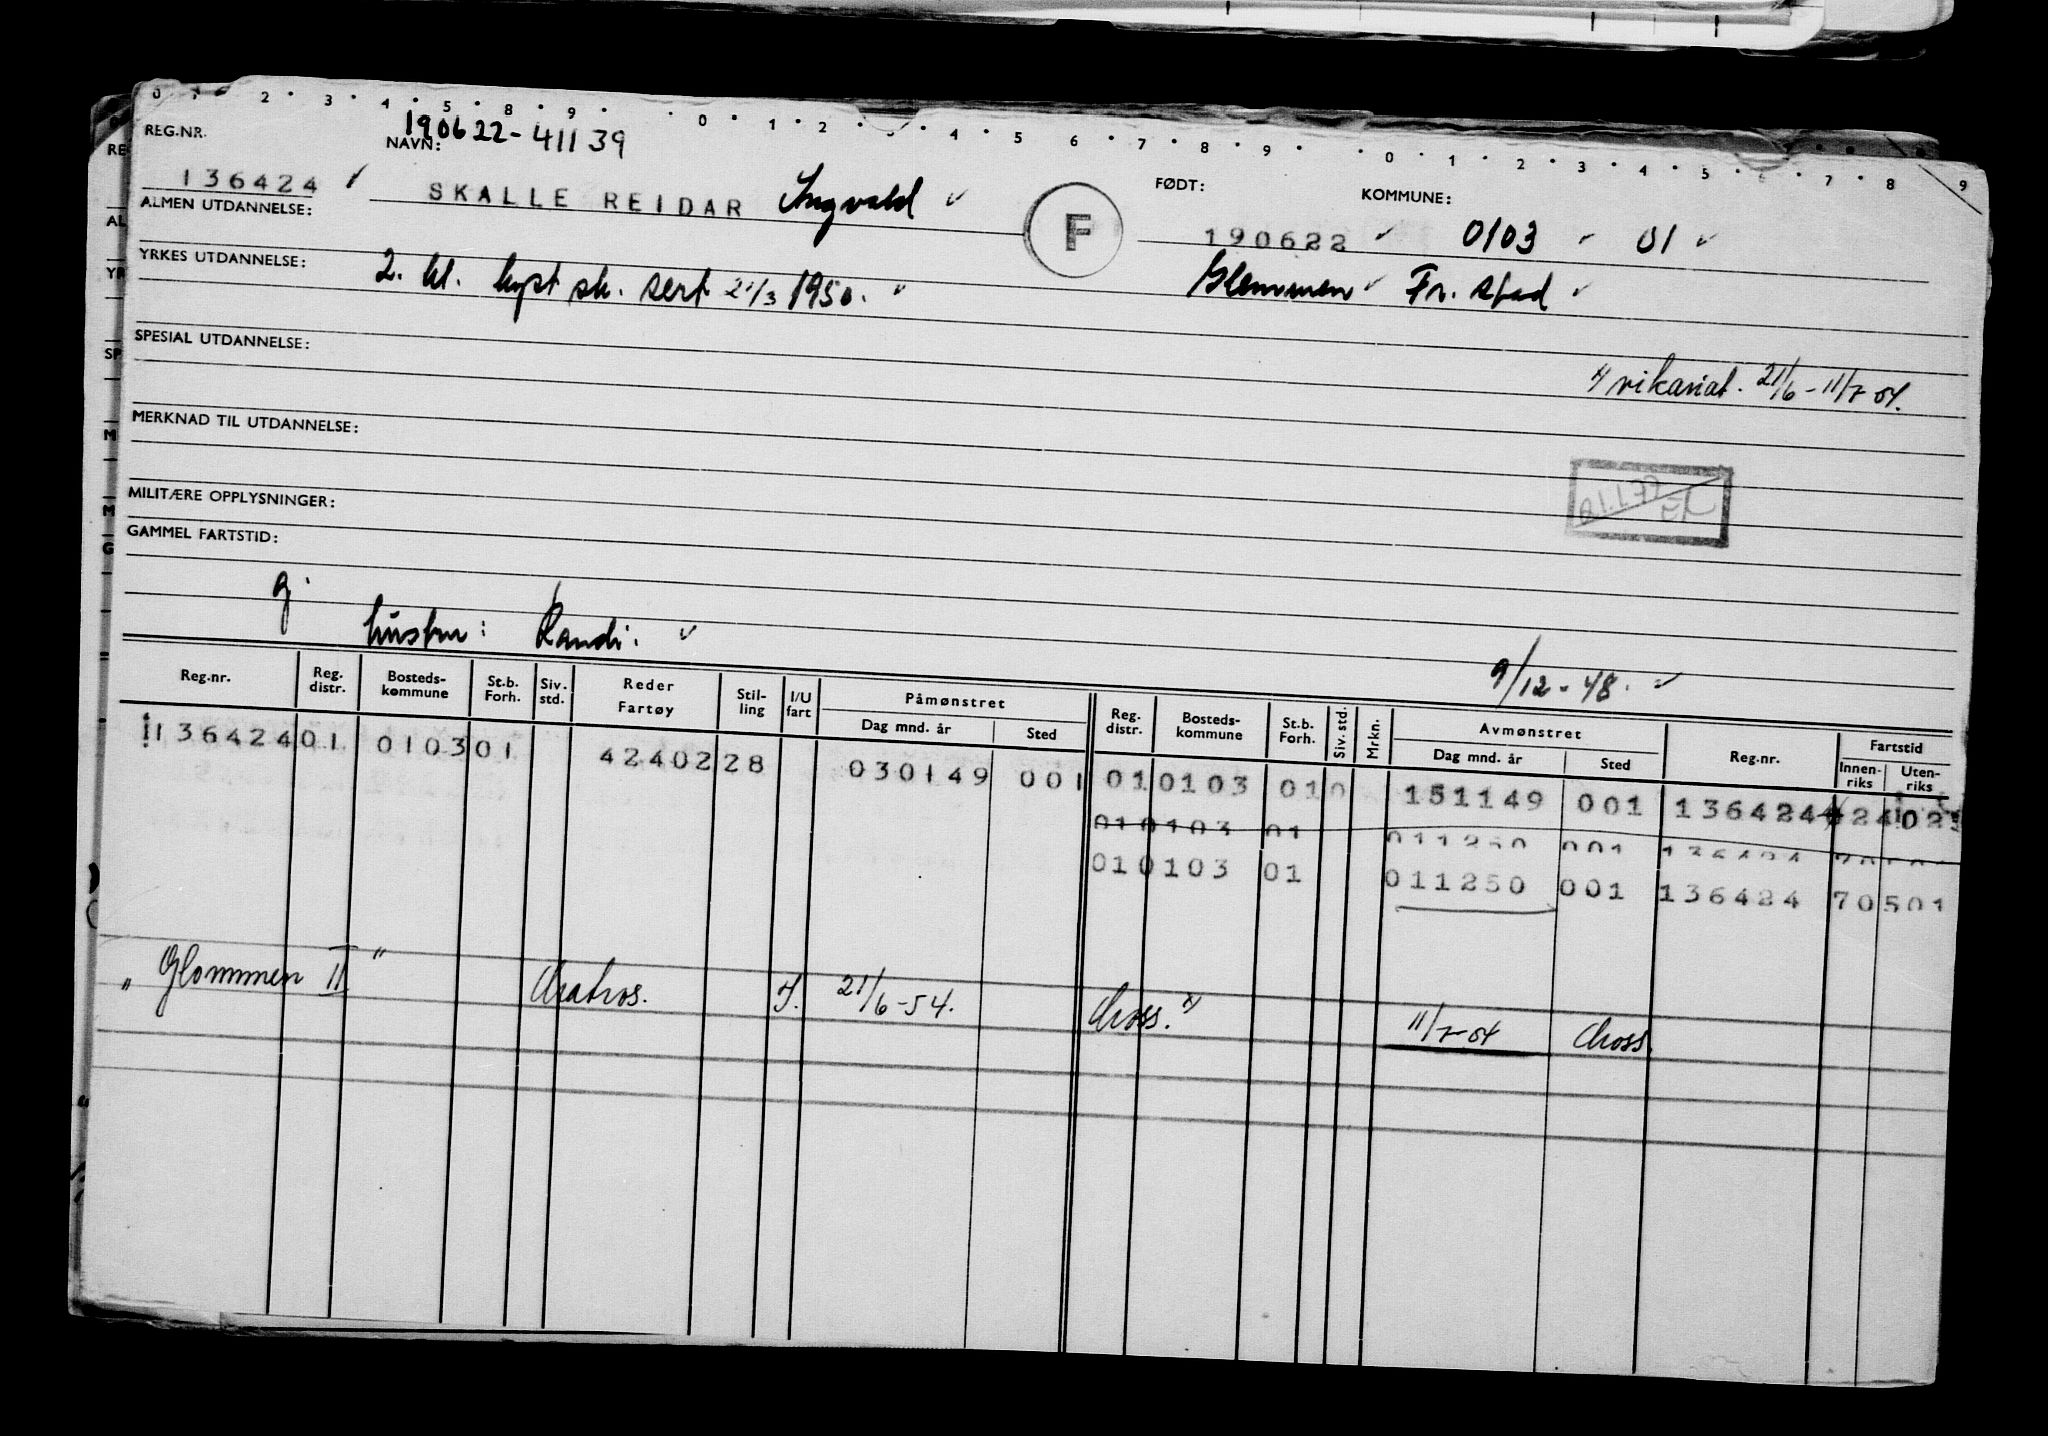 0 1 2 3 4 5 8 9 0 1 2 4 5 6 7 8 9 0 1 2 3 4 5 6 7 8 9
190622-41139
REG.NR. NAVN: FØDT: KOMMUNE:
136424 SKALLE REIDAR Ingvald F 190622 0103 01
ALMEN UTDANNELSE:
YRKES UTDANNELSE: 2. kl. kyst sk. sert 21/3 1950. Glemmen Fr. stad
SPESIAL UTDANNELSE:
4 vikariat. 21/6 - 11/7 54.
MERKNAD TIL UTDANNELSE:
MILITÆRE OPPLYSNINGER:
GAMMEL FARTSTID:
g.
hustru: Randi.
9/12-48.
Reg.nr. Reg. distr. Bosteds-kommune St.b. Forh. Siv. std. Reder Fartøy Stil-ling I/U fart Påmønstret Dag mnd. år Sted Reg. distr. Bosteds-kommune St.b. Forh. Siv. std. Mrkn. Avmønstret Dag mnd. år Sted Reg.nr. Fartstid Innen-riks Uten-riks
136424 01 0103 01 4240228 030149 001 01 0103 010 151149 001 136424
01 0103 01 011250 001 136424
01 0103 01 011250 001 136424 70501
"Glommen II" Matros. I. 21/6-54. Moss. 4) 11/7-54 Moss.